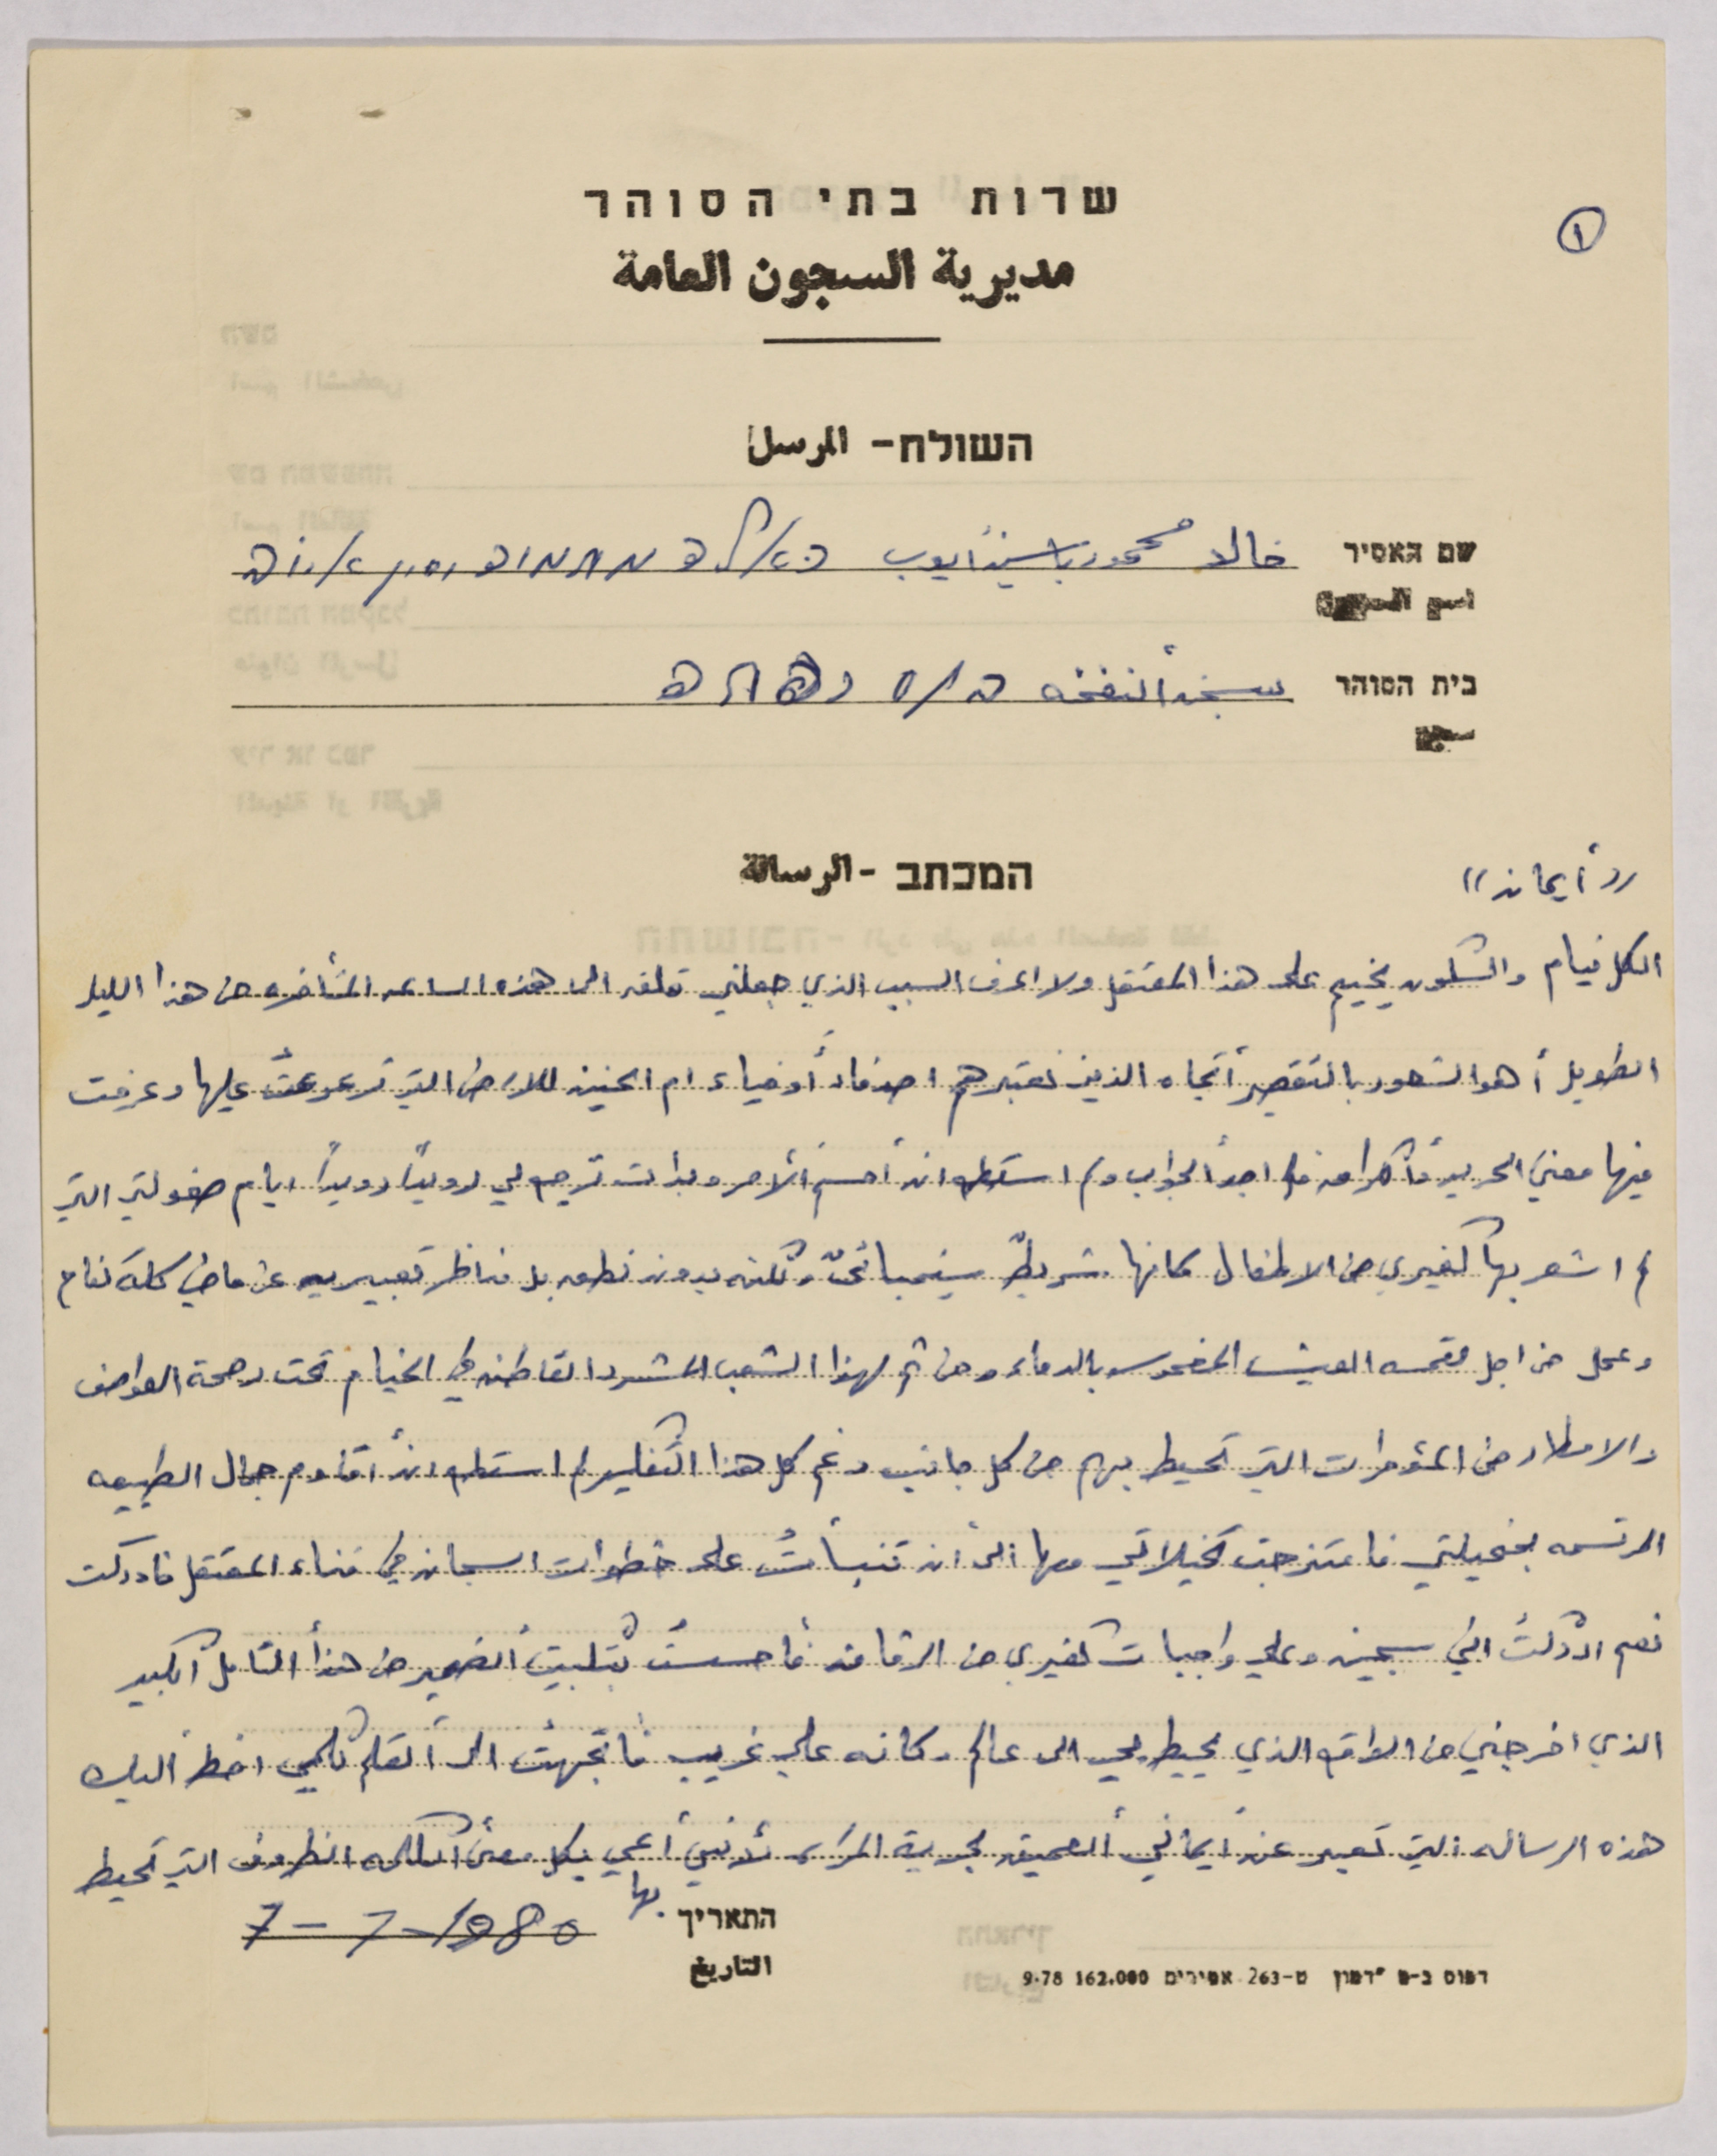 ①
שרות בתי הסוהר
مديرية السجون العامة
השולח - المرسل
שם האסיר خالد محمود ياسين ايوب
اسم السجين
בית הסוהר سجن النفخه
سجن
המכתב - الرسالة
((أيمان))
الكل نيام والسكون يخيم على هذا المعتقل ولا اعرف السبب الذي جعلني قلقه الى هذه الساعه المتأخره من هذا الليل
الطويل أهو الشعور بالتقصير أتجاه الذين نعتبرهم اصدقاء أوفياء ام الحنين للارض التي ترعرعتُ عليها وعرفت
فيها معنى الحريه والكرامه فلم اجد الجواب ولم استطع ان أحسم ألأمر وبدأت ترجع لي رويداً رويداً ايام طفولتي التي
لم اشعر بها كغيري من الاطفال كانها شريطٌ سينمبائىٌ ولكنه بدون نطق بل مناظر تعبيريه عن ماضي كله كفاح
وعمل من اجل لقمه العيش المغموسه بالدماء ومن ثم لهذا الشعب المشرد القاطن في الخيام تحت رحمة العواصف
والامطار من المؤمرات التي تحيط بهم من كل جانب رغم كل هذا التفكير لم استطع ان أقاوم جمال الطبيعه
المرتسمه بمخيلتي فامتزجت تخيلاتي معها الى أن تنبأتُ على خطوات السجان في فناء المعتقل فادركت
نعم ادركتُ اني سجين وعلي واجبات كغيري من الرفاق فأحسستُ بتبليت الضمير من هذا التأمل الكبير
الذي اخرجني من الواقع الذي يحيط بي الى عالم وكانه علي غريب فأتجهتُ الى القلم لكي اخط أليك
هذه الرساله التي تعبير عن أيماني ألعميق بحرية المرأه لأنني أعي بكل معنى الكلمه الظروف التي تحيط
بها
התאריך 7-7-1980
التاريخ
דפוס ב-ס "דמון ט-263 אסירים 162.000 9.78